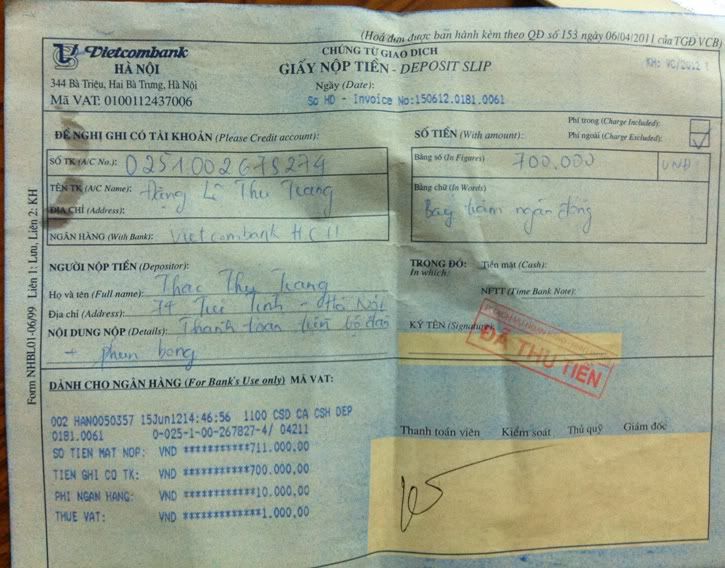 (Hoá đơn được ban hành kèm theo QĐ số 153 ngày 06/04/2011 của TGĐ VCB)
Vietcombank
HÀ NỘI
344 Bà Triệu, Hai Bà Trưng, Hà Nội
Mã VAT: 0100112437006
CHỨNG TỪ GIAO DỊCH
GIẤY NỘP TIỀN - DEPOSIT SLIP
Ngày (Date):
So HD - Invoice No:150612.0181.0061
KH: VC/2012
Phí trong (Charge Included):
Phí ngoài (Charge Excluded):
ĐỀ NGHỊ GHI CÓ TÀI KHOẢN (Please Credit account):
SỐ TK (A/C No.): 0251002678274
TÊN TK (A/C Name): Đặng Lê Thu Trang
ĐỊA CHỈ (Address):
NGÂN HÀNG (With Bank): Vietcombank HCM
SỐ TIỀN (With amount):
Bằng số (In Figures) 700.000 VND
Bằng chữ (In Words)
Bảy trăm ngàn đồng
NGƯỜI NỘP TIỀN (Depositor):
Họ và tên (Full name): Thạc Thy Trang
Địa chỉ (Address): 74 Tuệ Tĩnh - Hà Nội
NỘI DUNG NỘP (Details): Thanh toán tiền
+ phun bong
TRONG ĐÓ: Tiền mặt (Cash):
In which:
NFTT (Time Bank Note):
KÝ TÊN (Signature):
ĐÃ THU TIỀN
DÀNH CHO NGÂN HÀNG (For Bank's Use only) MÃ VAT:
002 HAN0050357 15Jun1214:46:56 1100 CSD CA CSH DEP
0181.0061 0-025-1-00-267827-4/ 04211
SO TIEN MAT NOP: VND ***********711.000,00
TIEN GHI CO TK: VND ***********700.000,00
PHI NGAN HANG: VND ************10.000,00
THUE VAT: VND *************1.000,00
Thanh toán viên Kiểm soát Thủ quỹ Giám đốc
Form NHBL01-06/99 Liên 1: Lưu, Liên 2: KH